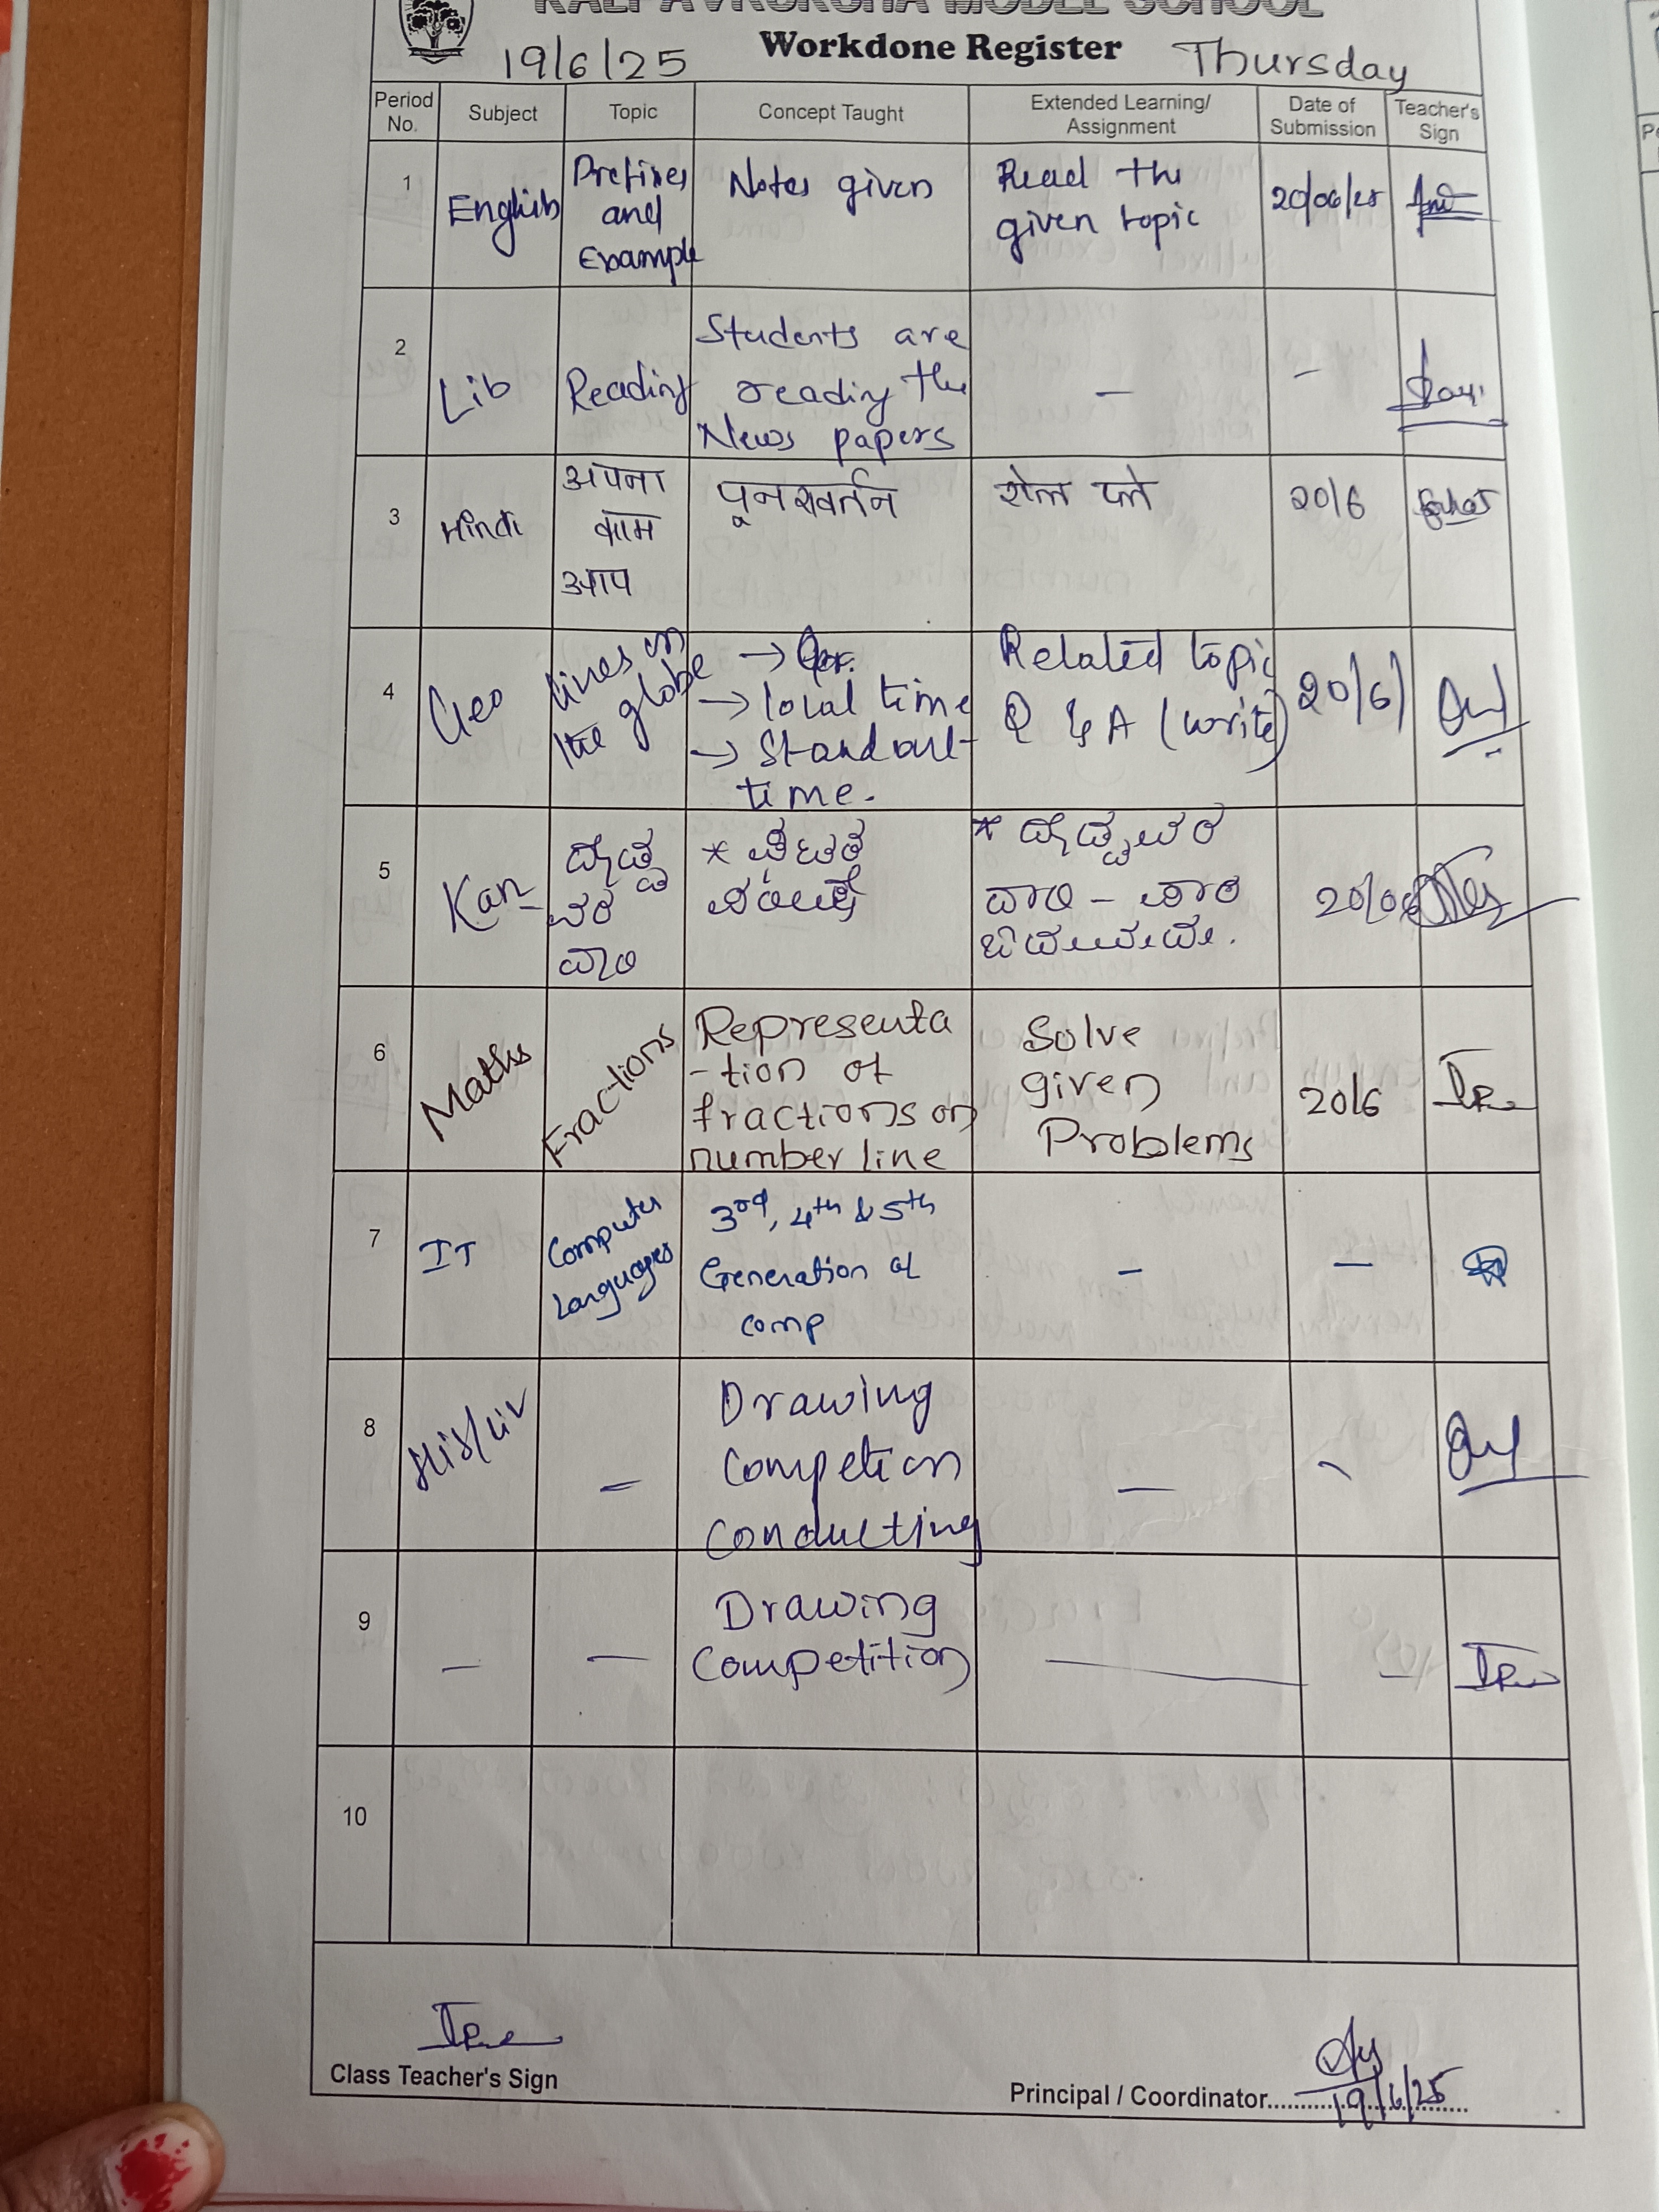 KALPAVRUKSHA MODEL SCHOOL
Workdone Register
19/6/25
Thursday
Period No.
Subject
Topic
Concept Taught
Extended Learning/
Assignment
Date of
Submission
Teacher's
Sign
1
English
Prefixes
and
Example
Notes given
Read the
given topic
20/06/25
2
Lib
Reading
Students are
reading the
News papers
–
–
3
Hindi
अपना
काम
आप
पूनरावर्तन
रोल प्ले
20/6
4
Geo
lines on
the globe
→ local time
→ Standard
time.
Related topic
Q & A (write)
20/6/
5
Kan
20/06
6
Maths
Fractions
Representa
-tion of
fractions on
number line
Solve
given
Problems
20/6
7
IT
Computer
Languages
3rd, 4th & 5th
Generation of
comp
–
–
8
–
Drawing
Competion
Conducting
–
9
–
–
Drawing
Competition
–
–
10
Class Teacher's Sign
Principal / Coordinator
19/6/25